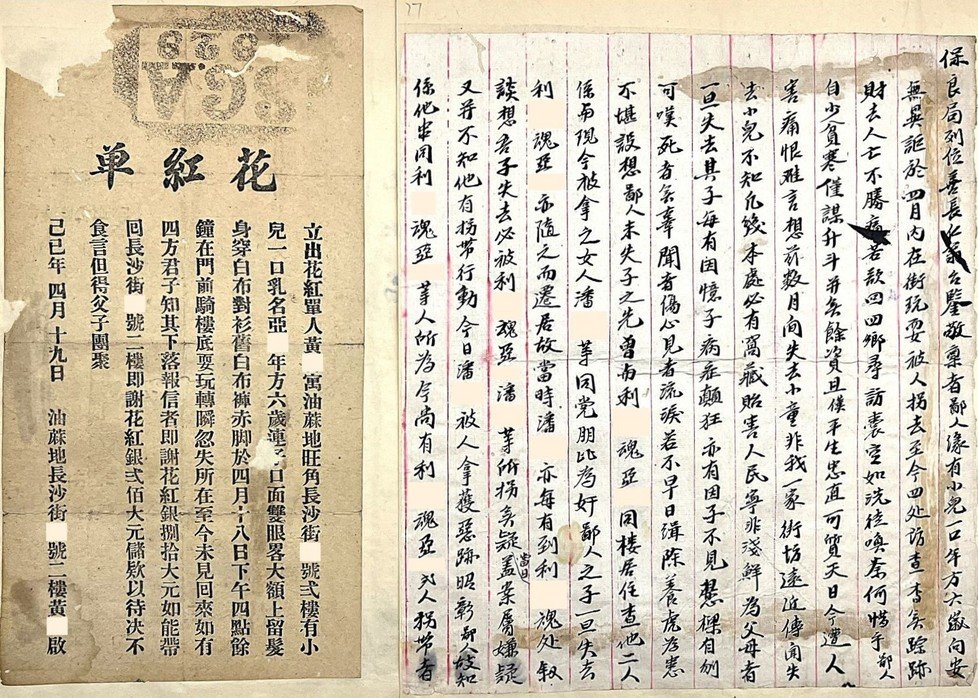 花紅单
立出花紅單人黃 寓油蔴地旺角長沙街 號弍樓有小
兒一口乳名亞 年方六歲連子口面雙眼畧大額上留髮
身穿白布對衫舊白布褲赤脚於四月十八日下午四點餘
鐘在門前騎樓底耍玩轉瞬忽失所在至今未見回來如有
四方君子知其下落報信者即謝花紅銀捌拾大元如能帶
回長沙街 號二樓即謝花紅銀弍佰大元儲欵以待决不
食言但得父子團聚
己巳年 四月 十九日 油蔴地長沙街 號二樓黃 啟
27
保良局列位善長仁翁台鑒敬稟者鄙人緣有小兒一口年方六歲向安
無異詎於四月內在街玩耍被人拐去至今四处訪查杳無踪跡
財去人亡不勝痛苦欵四四鄉尋訪囊空如洗徒喚奈何惜乎鄙人
自少貧寒僅謀升斗并無餘資且僕平生忠直可質天日今遭人
害痛恨难言想茲数月间失去小童非我一家街坊遠近傳聞失
去小兒不知凡幾本處必有窩藏貽害人民寧非淺鮮為父母者
一旦失去其子每有因憶子病症顛狂亦有因子不見懸樑自刎
可嘆死者無辜聞者傷心見者流淚若不早日緝除養虎為患
不堪設想鄙人未失子之先曾与利 魂亞 同楼居住查他二人
係与现今被拿之女人潘 等同党朋比為奸鄙人之子一旦失去
利 魂亞 亦随之而遷居故當時潘 亦每有到利 魂处叙
談想吾子失去必被利 魂亞 潘 等所拐無疑盖當日案屬嫌疑
又并不知他有拐帶行動今日潘 被人拿獲惡跡昭彰鄙人故知
係他串同利 魂亞 等人所為今尚有利 魂亞 弍人拐帶者